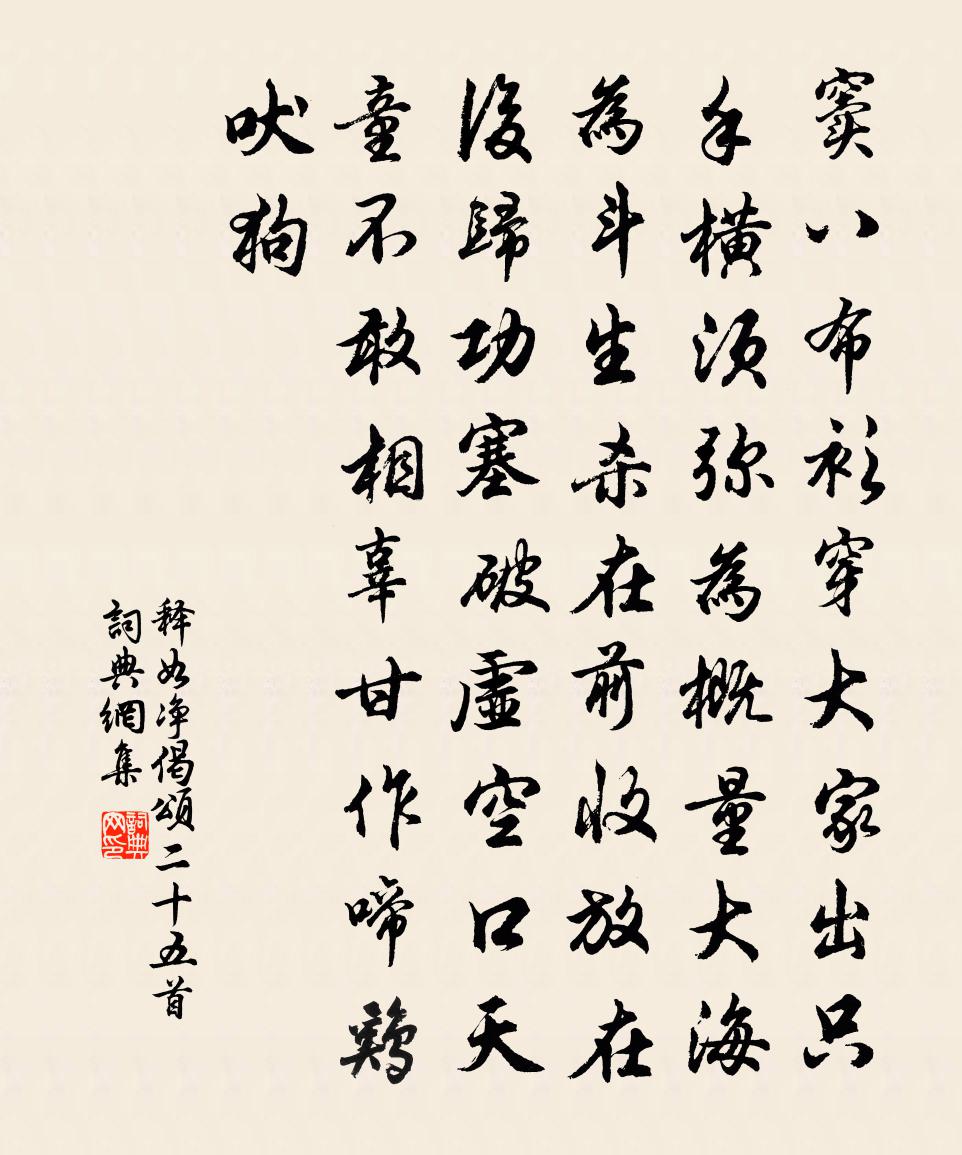 窦八布衫穿大家出只
手横须弥為概量大海
為斗生杀在前收放在
後歸功塞破虛空口天
童不敢相辜甘作啼鷄
吠狗
释如净偈頌二十五首
詞典網集
詞典网印